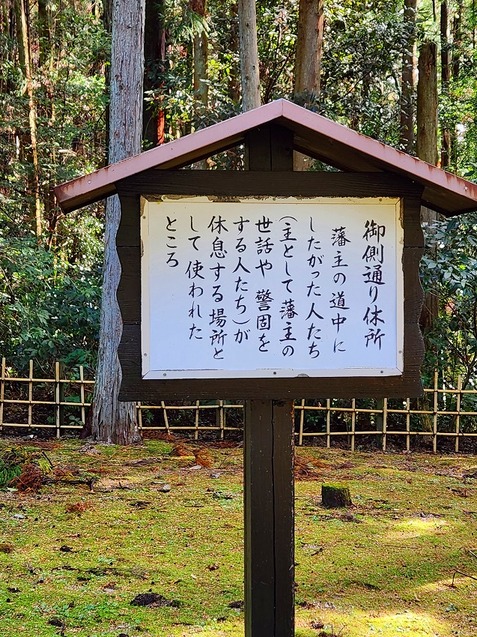 御側通り休所
藩主の道中に
したがった人たち
(主として藩主の
世話や 警固を
する人たち)が
休息する場所と
して 使われた
ところ